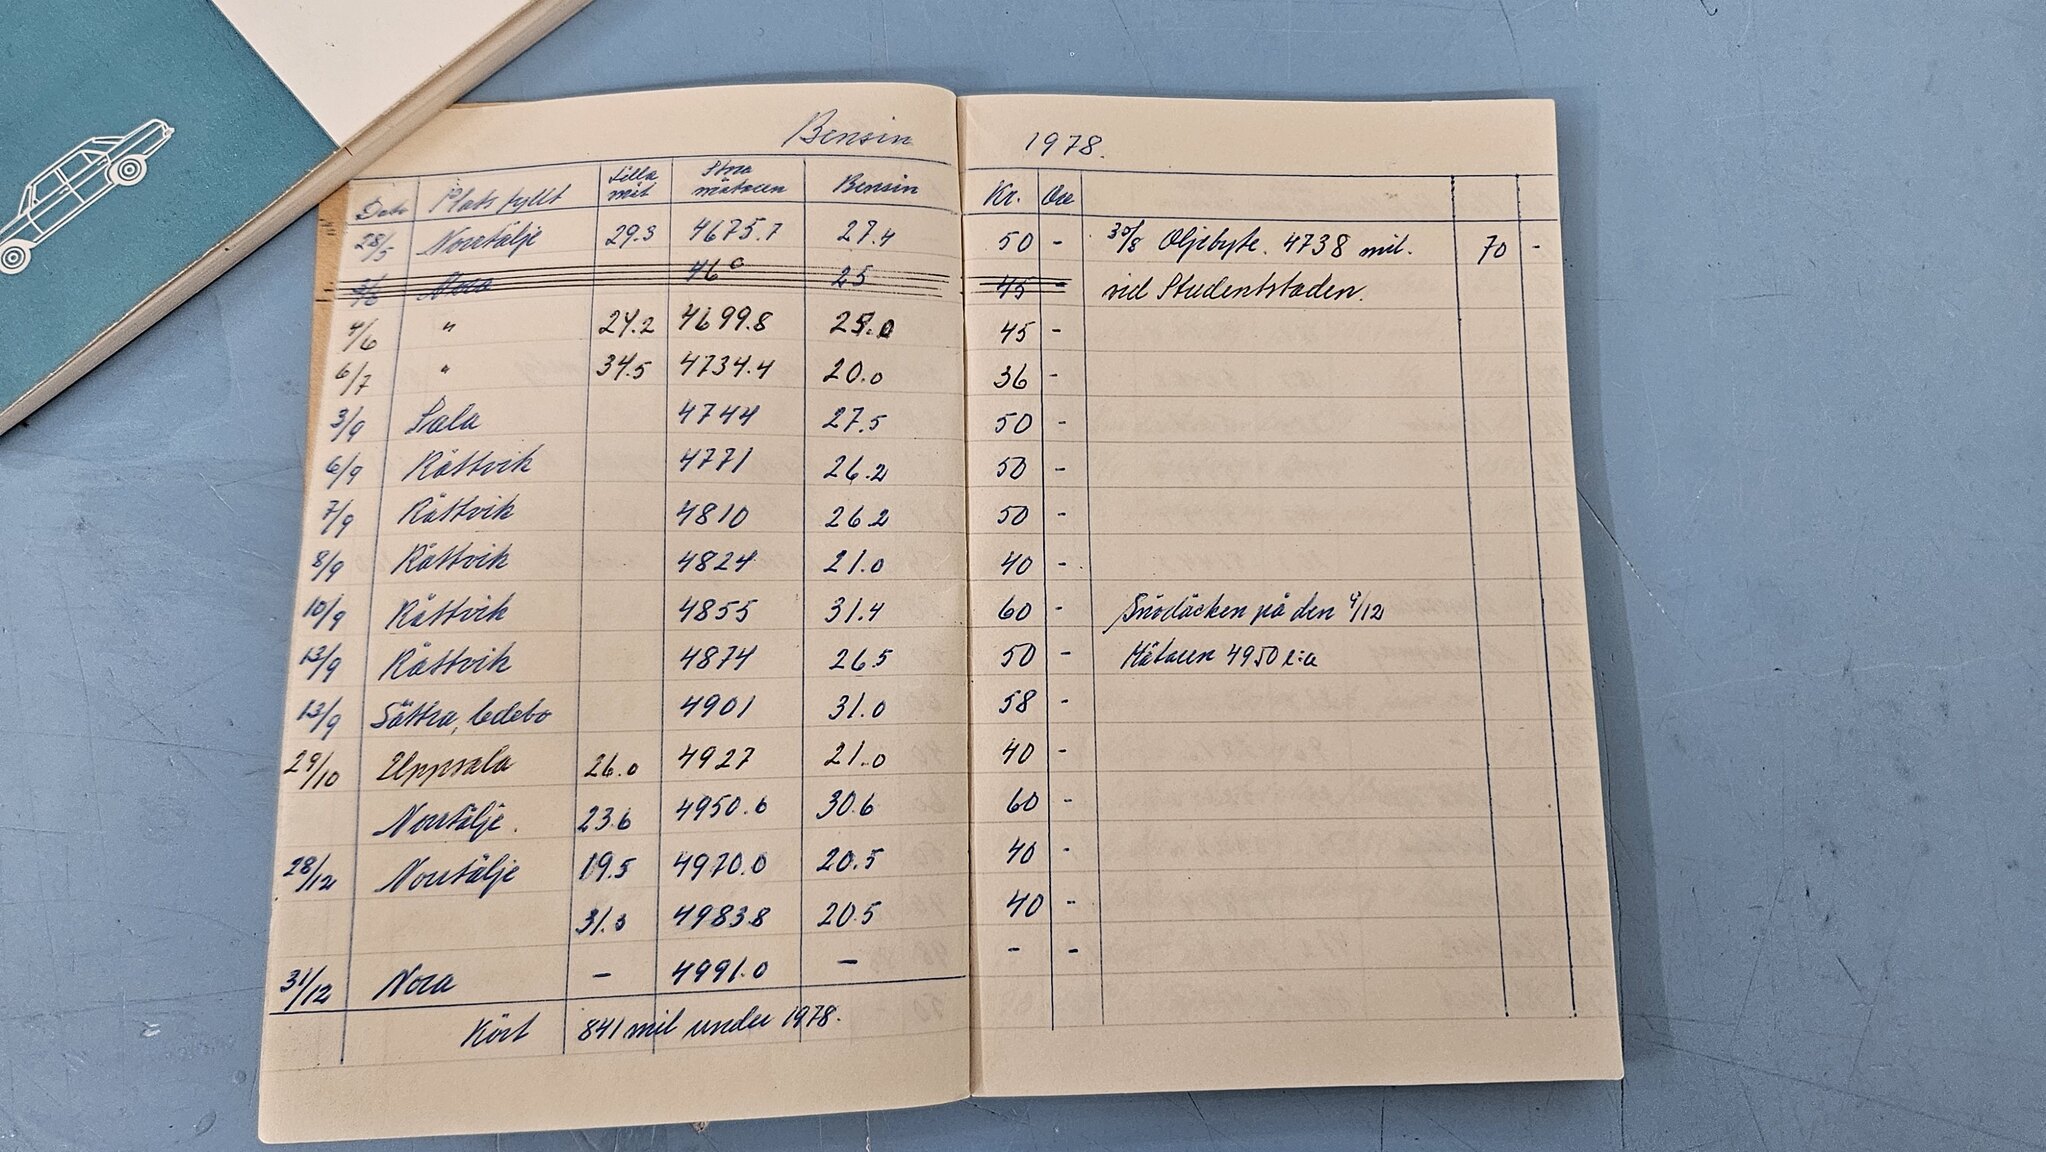 Bensin 1978.
Dat. Plats fyllt Lilla mät Stora mätaren Bensin Kr. Öre
28/5 Norrtälje 29.3 4675.7 27.4 50 - 30/8 Oljebyte. 4738 mil. 70 -
Nora 46 25 45 - vid Studentstaden.
4/6 " 24.2 4699.8 25.0 45 -
6/7 " 34.5 4734.4 20.0 36 -
3/9 Sala 4744 27.5 50 -
6/9 Rättvik 4771 26.2 50 -
7/9 Rättvik 4810 26.2 50 -
8/9 Rättvik 4824 21.0 40 -
10/9 Rättvik 4855 31.4 60 - Snödäcken på den 9/12
13/9 Rättvik 4874 26.5 50 - Mätaren 4950 c:a
13/9 Sättra, 4901 31.0 58 -
29/10 Uppsala 26.0 4927 21.0 40 -
Norrtälje. 23.6 4950.6 30.6 60 -
28/12 Norrtälje 19.5 4970.0 20.5 40 -
31.3 4983.8 20.5 40 -
31/12 Nora - 4991.0 - - -
Kört 841 mil under 1978.